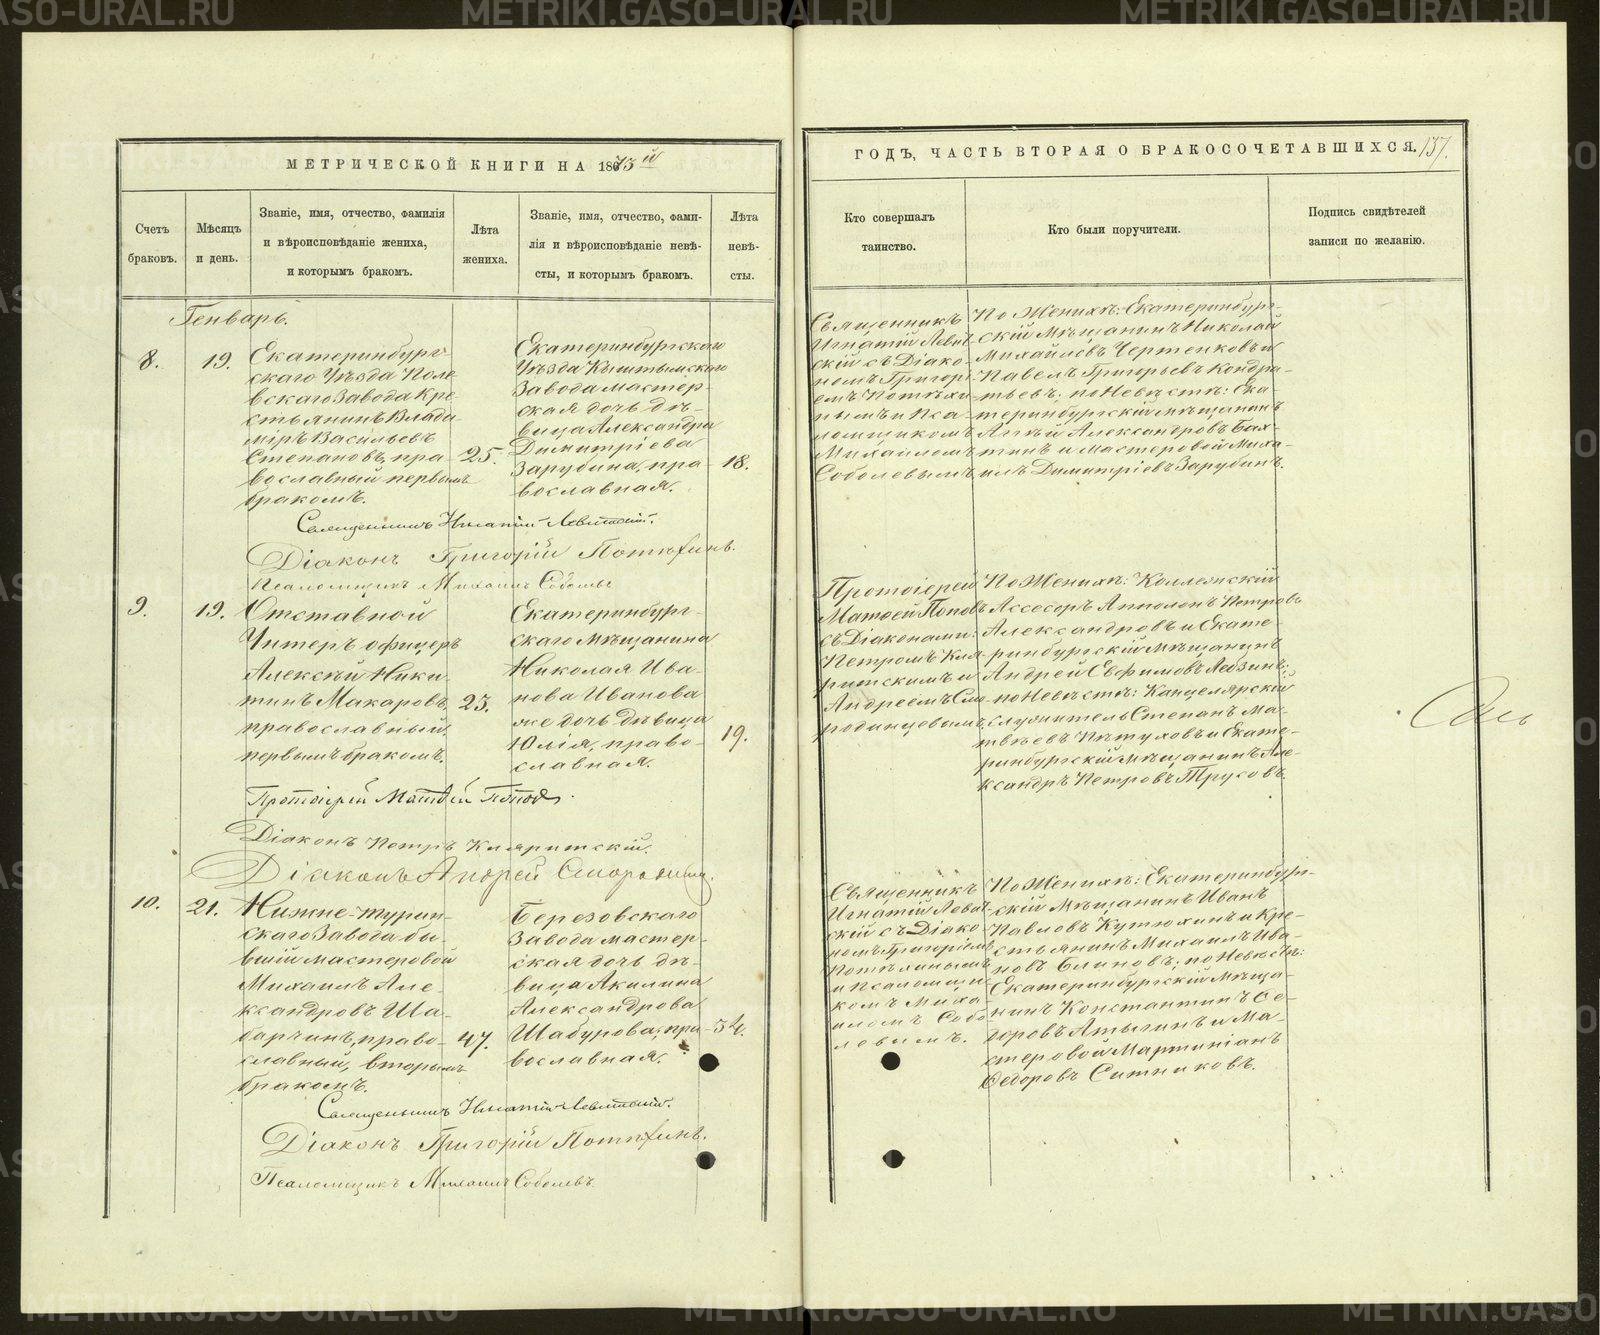 МЕТРИЧЕСКОЙ КНИГИ НА 1873 й
Счетъ браковъ.
Мѣсяцъ и день.
Званіе, имя, отчество, фамилія
и вѣроисповѣданіе жениха,
и которымъ бракомъ.
Лѣта жениха.
Званіе, имя, отчество, фами-
лія и вѣроисповѣданіе невѣ-
сты, и которымъ бракомъ.
Лѣта невѣ-
сты.
Генварь.
8.
19.
Екатеринбург-
скаго Уѣзда Поле
вскаго Завода Кре
стьянинъ Влади
міръ Васильевъ
Степановъ, пра
вославный первымъ
бракомъ.
25.
Екатеринбургскаго
Уѣзда Кыштымскаго
Завода мастер-
ская дочь дѣ-
вица Александра
Димитріева
Зарубина, пра-
вославная.
18.
Священникъ Игнатій Левитскій.
Діаконъ Григорій Потѣхинъ.
Псаломщикъ Михаилъ Соболевъ
9.
19.
Отставной
Унтеръ офицеръ
Алексѣй Ники
тинъ Макаровъ,
православный,
первымъ бракомъ.
23.
Екатеринбург-
скаго мѣщанина
Николая Ива-
нова Иванова
же дочь дѣвица
Юлія, право-
славная.
19.
Протоіерей Матѳей Поповъ.
Діаконъ Петръ Кляритскій.
Діаконъ Андрей
10.
21.
Нижне-турин-
скаго Завода бы-
вшій мастеровой
Михаилъ Але-
ксандровъ Ша-
барчинъ, право-
славный, вторымъ
бракомъ.
47.
Березовскаго
Завода мастер-
ская дочь дѣ-
вица Акилина
Александрова
Шабурова, пра-
вославная.
34.
Священникъ Игнатій Левитскій.
Діаконъ Григорій Потѣхинъ.
Псаломщикъ Михаилъ Соболевъ
ГОДЪ, ЧАСТЬ ВТОРАЯ О БРАКОСОЧЕТАВШИХСЯ.
137.
Кто совершалъ
таинство.
Кто были поручители.
Подпись свидѣтелей
записи по желанію.
Священникъ
Игнатій Левит-
скій съ Діако-
номъ Григорі-
емъ Потѣхи-
нымъ и Пса-
ломщикомъ
Михаиломъ
Соболевымъ
По Женихѣ: Екатеринбург-
скій Мѣщанинъ Николай
Михайловъ Чертенковъ и
Павелъ Григорьевъ Кондра-
тьевъ; по Невѣстѣ: Ека-
теринбургскій мѣщанинъ
Александровъ Бах-
тинъ и мастеровой Миха-
илъ Димитріевъ Зарубинъ.
Протоіерей
Матѳей Поповъ
съ Діаконами:
Петромъ Кля-
ритскимъ и
Андреемъ Смо-
родинцевымъ.
По Женихѣ: Коллежскій
Ассесоръ Апполонъ Петровъ
Александровъ и Екате-
ринбургскій мѣщанинъ
Андрей Евфимовъ
по Невѣстѣ: Канцелярскій
служитель Степанъ Ма-
твѣевъ Пѣтуховъ и Екате-
ринбургскій мѣщанинъ Але-
ксандръ Петровъ Трусовъ.
Священникъ
Игнатій Левит-
скій съ Діако-
номъ Григоріемъ
Потѣхинымъ
и Псаломщи-
комъ Миха-
иломъ Собо
левымъ.
По Женихѣ: Екатеринбург-
скій мѣщанинъ Иванъ
Павловъ Кутюхинъ и Кре-
стьянинъ Михаилъ Ива-
новъ Блиновъ; по Невѣстѣ:
Екатеринбургскій Мѣща-
нинъ Константинъ Ѳе-
доровъ Атыгинъ и Ма-
стеровой Мартиніанъ
Ѳедоровъ Ситниковъ.
METRIKI.GASO-URAL.RU